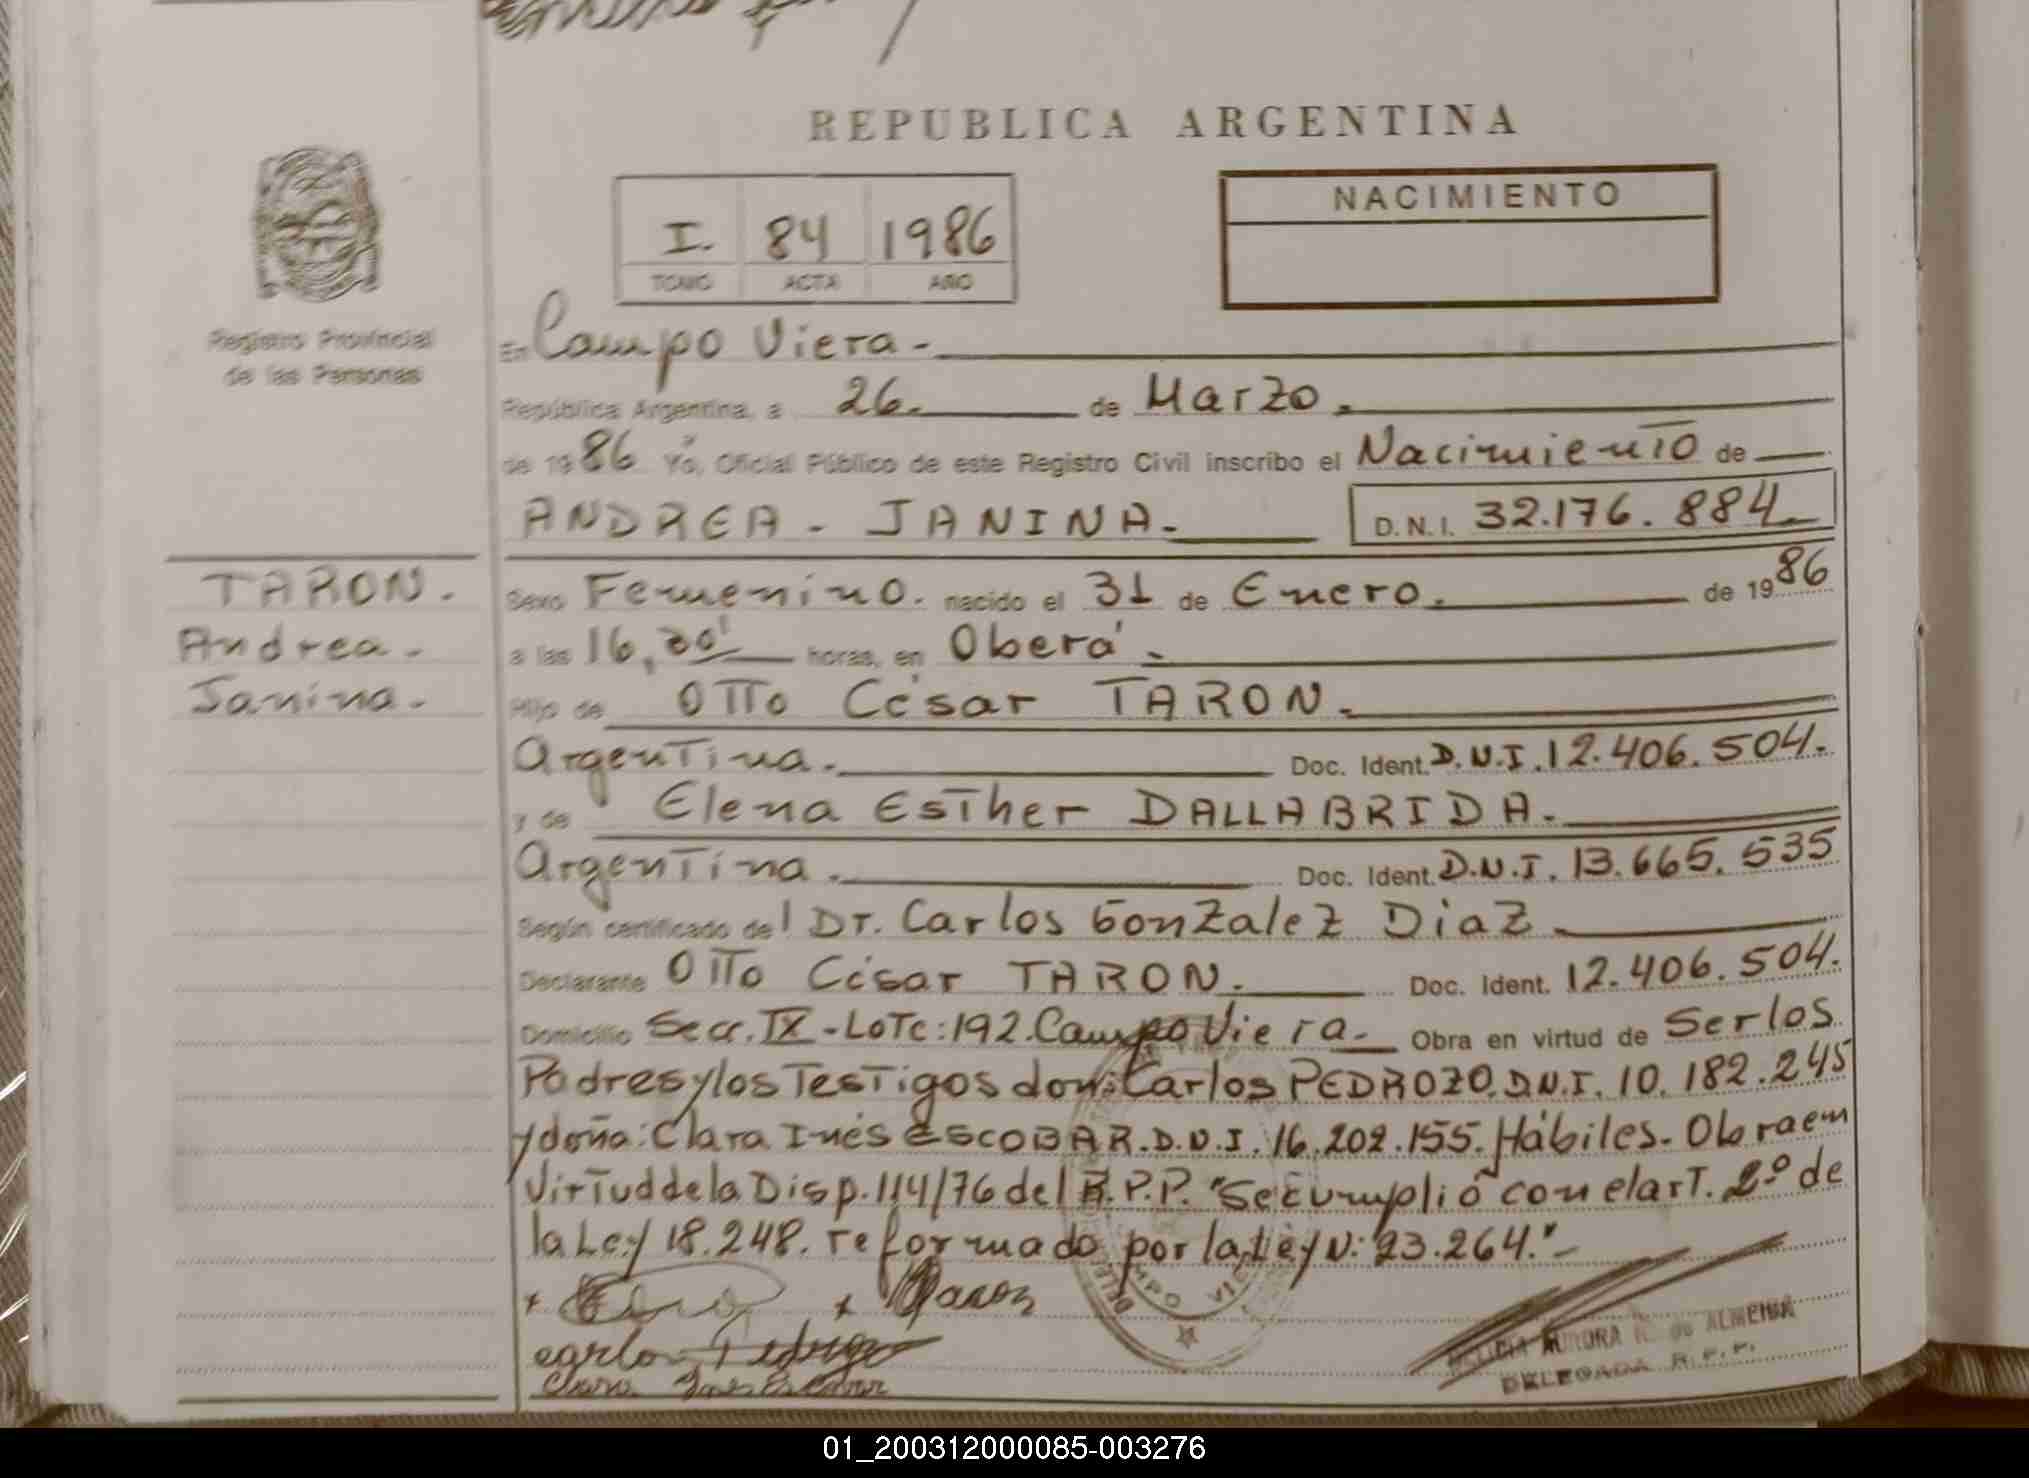 REPUBLICA ARGENTINA
NACIMIENTO
I. 84 1986
TOMO ACTA AÑO
Registro Provincial
de las Personas
En Campo Viera.-
República Argentina, a 26. de Marzo.
de 1986 Yo, Oficial Público de este Registro Civil inscribo el Nacimiento de
ANDREA - JANINA.- D.N.I. 32.176.884.-
TARON.
Andrea.
Janina.
Sexo Femenino. nacido el 31 de Enero. de 1986
a las 16, horas, en Oberá.-
Hijo de OTTO César TARON.
Argentina. Doc. Ident. D.N.I. 12.406.504.
y de Elena Esther DALLABRIDA.
Argentina. Doc. Ident. D.N.I. 13.665.535
Según certificado del Dr. Carlos Gonzalez Diaz
Declarante OTTO César TARON. Doc. Ident. 12.406.504.
Domicilio Secc. IX - Lote: 192. Campo Viera.- Obra en virtud de Ser los
Padres y los Testigos don: Carlos PEDROZO. D.N.I. 10.182.245
y doña: Clara Inés ESCOBAR. D.N.I. 16.202.155. Hábiles. Obra en
Virtud de la Disp. 114/76 del R.P.P. "Se cumplió con el art. 2º de
la Ley 18.248. reformado por la Ley N: 23.264."-
Carlos Pedrozo
Clara Ines Escobar
AURORA R. de ALMEIDA
DELEGADA R.P.P.
01_200312000085-003276